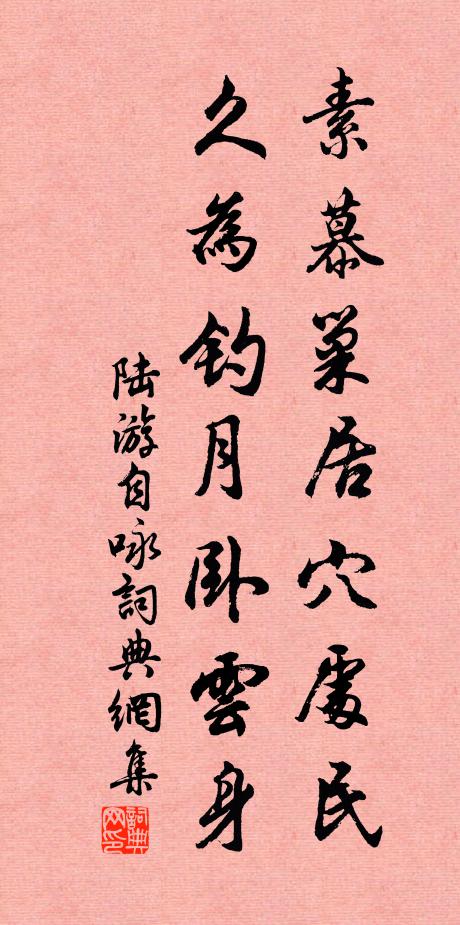 素慕巢居穴處民
久為釣月臥雲身
陆游自詠詞典網集
詞典
网印